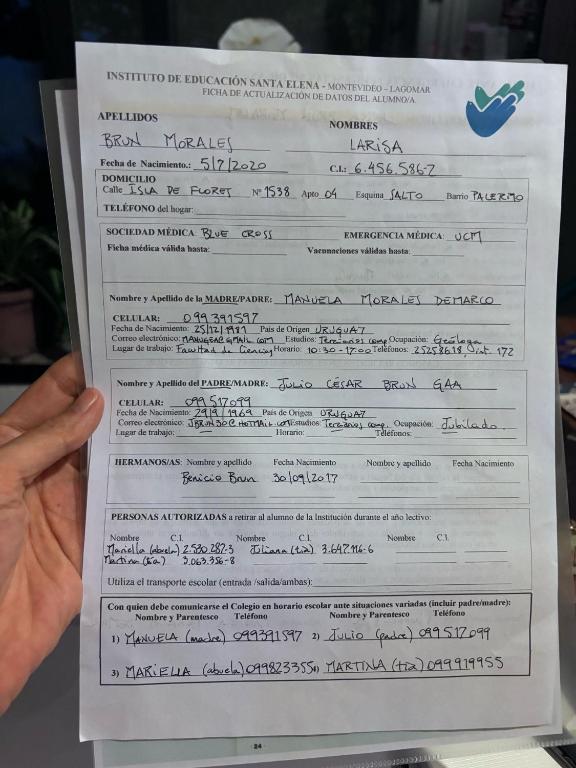 INSTITUTO DE EDUCACIÓN SANTA ELENA - MONTEVIDEO - LAGOMAR
FICHA DE ACTUALIZACIÓN DE DATOS DEL ALUMNO/A
APELLIDOS NOMBRES
BRUN MORALES LARISA
Fecha de Nacimiento.: 5/7/2020 C.I.: 6.456.586-2
DOMICILIO
Calle ISLA DE FLORES Nº 1538 Apto 04 Esquina SALTO Barrio PALERMO
TELÉFONO del hogar:
SOCIEDAD MÉDICA: BLUE CROSS EMERGENCIA MÉDICA: UCM
Ficha médica válida hasta: Vacunaciones válidas hasta:
Nombre y Apellido de la MADRE/PADRE: MANUELA MORALES DEMARCO
CELULAR: 099391597
Fecha de Nacimiento: 25/12/1981 País de Origen URUGUAY
Correo electrónico: Estudios: Terciarios comp. Ocupación: Geóloga
Lugar de trabajo: Facultad de Ciencias Horario: 10:30-17:00 Teléfonos: 25258618 int. 172
Nombre y Apellido del PADRE/MADRE: JULIO CÉSAR BRUN GAA
CELULAR: 099517099
Fecha de Nacimiento: 29/9/1969 País de Origen URUGUAY
Correo electrónico: Estudios: Terciarios comp. Ocupación: Jubilado.
Lugar de trabajo: Horario: Teléfonos:
HERMANOS/AS: Nombre y apellido Fecha Nacimiento Nombre y apellido Fecha Nacimiento
Benicio Brun 30/09/2017
PERSONAS AUTORIZADAS a retirar al alumno de la Institución durante el año lectivo:
Nombre C.I. Nombre C.I. Nombre C.I.
Mariella (abuela) 2.530.287-3 Juliana (tía) 3.647.116-6
Martina (tía) 3.063.356-8
Utiliza el transporte escolar (entrada /salida/ambas):
Con quien debe comunicarse el Colegio en horario escolar ante situaciones variadas (incluir padre/madre):
Nombre y Parentesco Teléfono Nombre y Parentesco Teléfono
1) MANUELA (madre) 099391597 2) JULIO (padre) 099517099
3) MARIELLA (abuela) 099823355 4) MARTINA (tía) 099919955
24